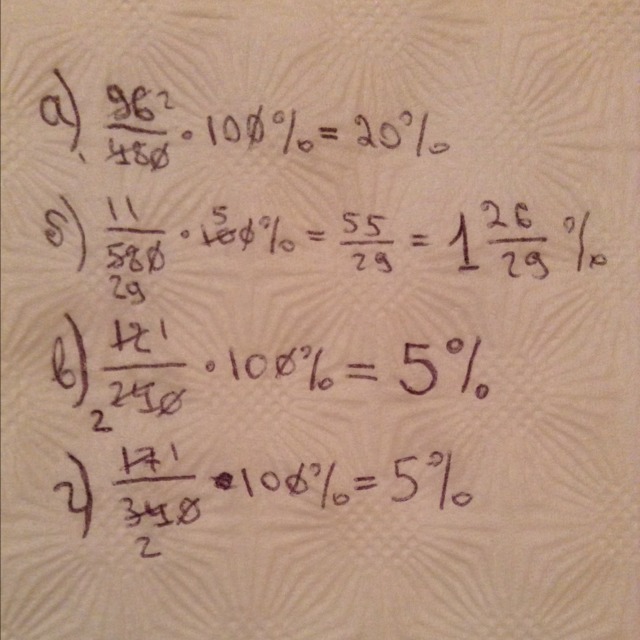 а) 96 2 / 480 · 100% = 20%
б) 11 / 580 29 · 100 5 % = 55/29 = 1 26/29 %
в) 12 1 / 240 2 · 100% = 5%
г) 17 1 / 340 2 · 100% = 5%